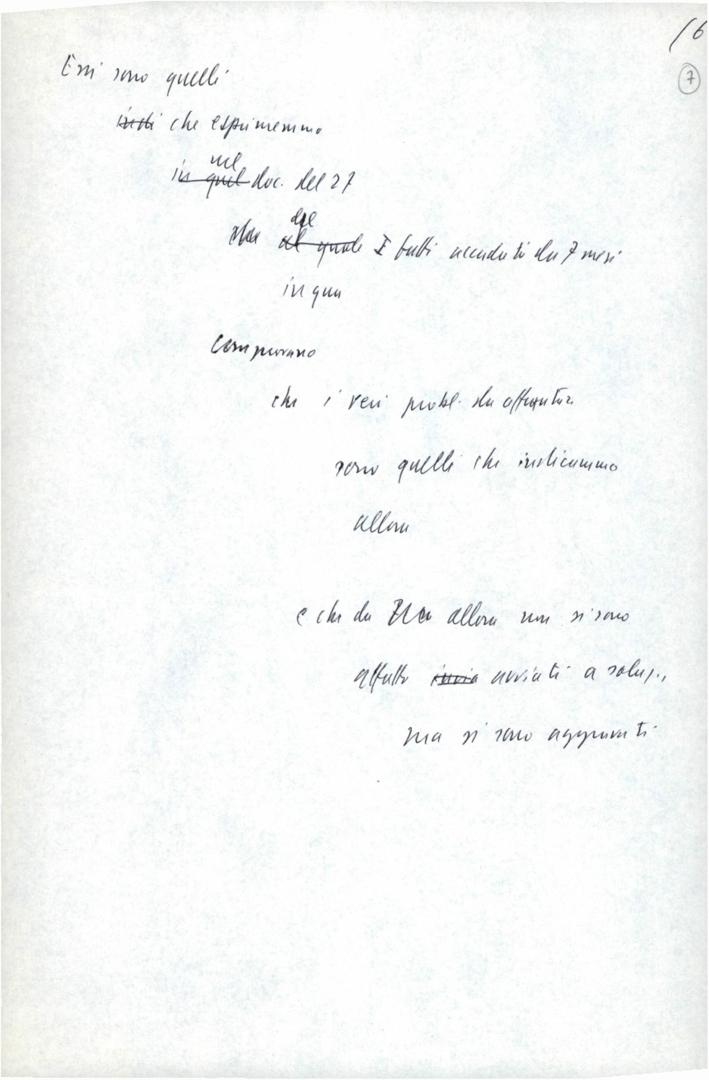 16
7
Essi sono quelli
indi che esprimemmo
nel
in quel doc. del 27
del
al quale I fatti accaduti da 7 mesi
in qua
comprovano
che i veri probl. da affrontare
sono quelli che indicammo
allora
e che da allora non si sono
affatto invia avviati a soluz.,
ma si sono aggravati